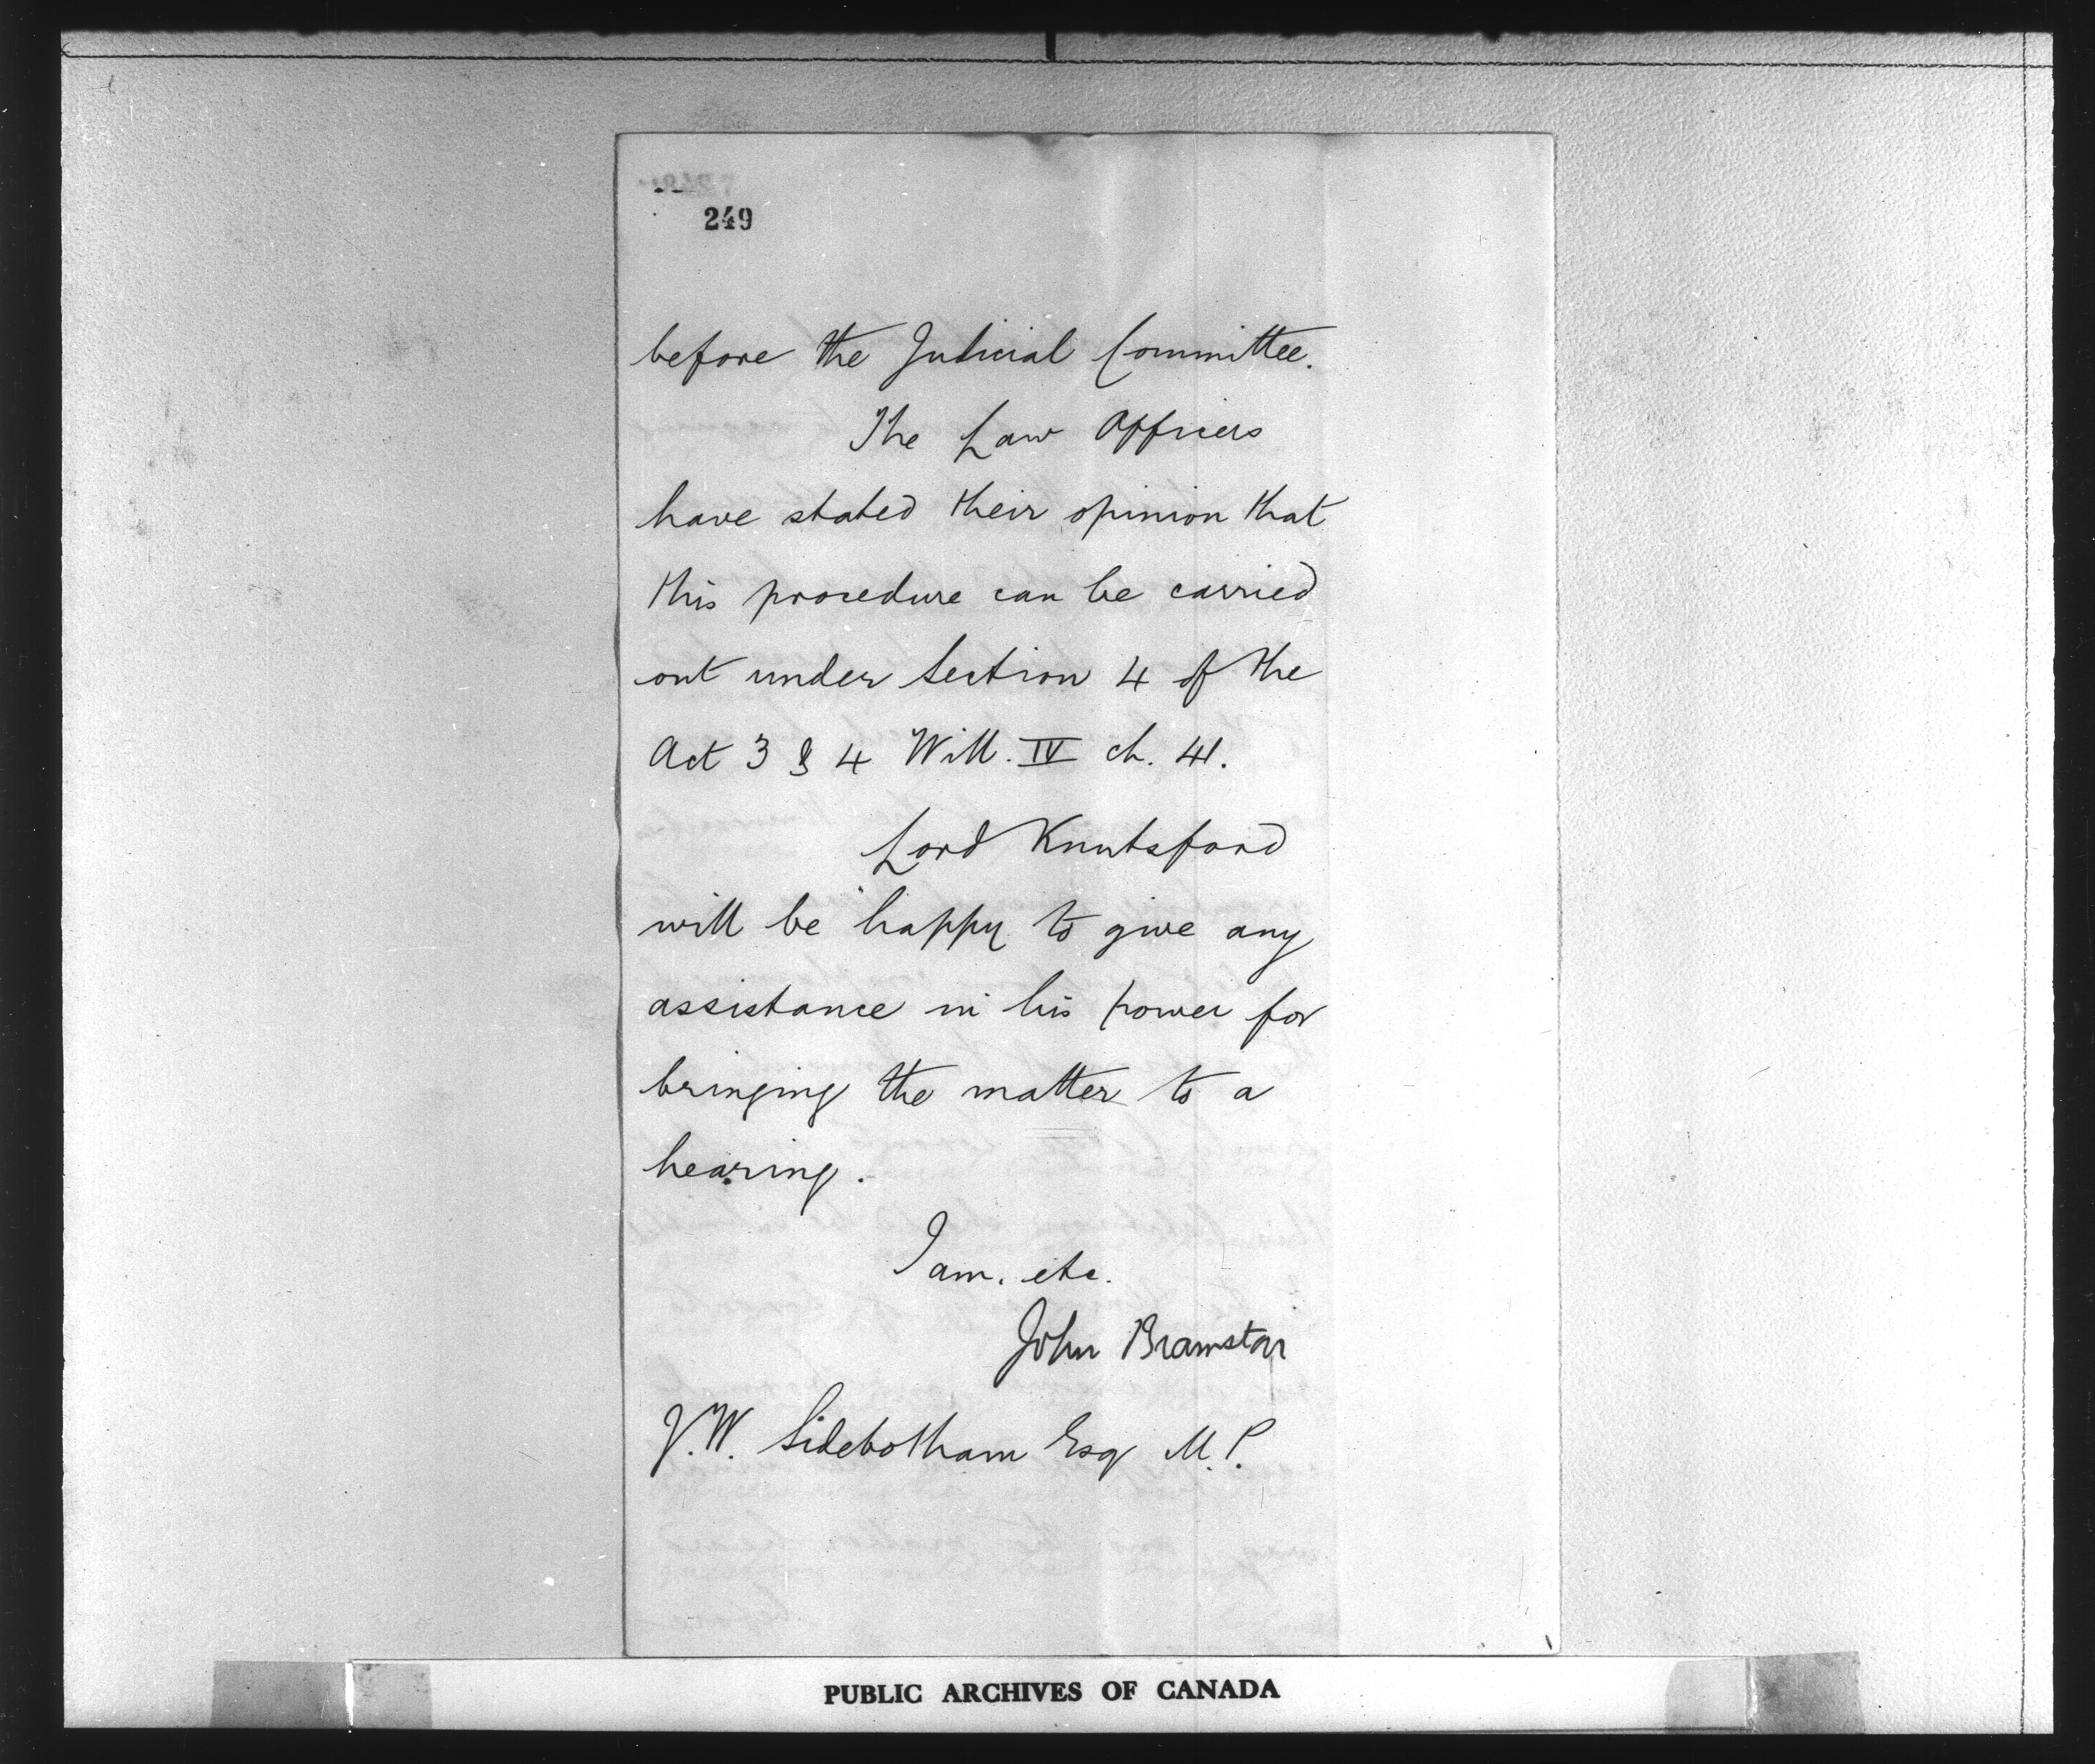 249
before the Judicial Committee.
The Law Officers
have stated their opinion that
this procedure can be carried
out under Section 4 of the
Act 3 & 4 Will. IV ch. 41.
Lord Knutsford
will be happy to give any
assistance in his power for
bringing the matter to a
hearing.
I am, etc.
John Bramston
J.W. Sidebotham Esq M.P.
PUBLIC ARCHIVES OF CANADA